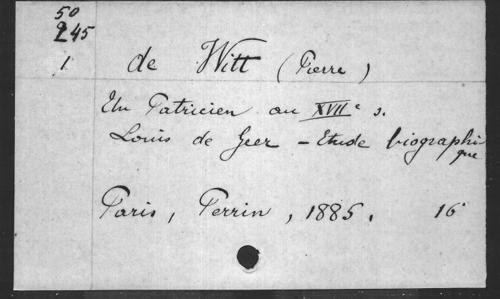 50
245
1
de Witt (Pierre)
Un Patricien au XVIIe s.
Louis de Geer - Etude biographi
que
Paris, Perrin, 1885. 16°